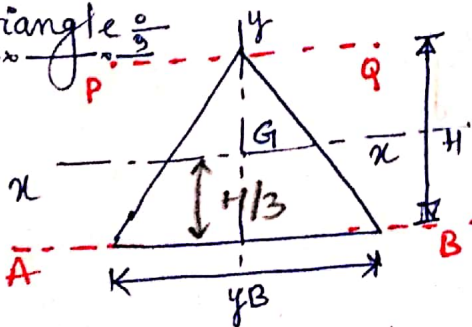 iangle :-
y
P
Q
G
x
x
H
H/3
A
B
yB